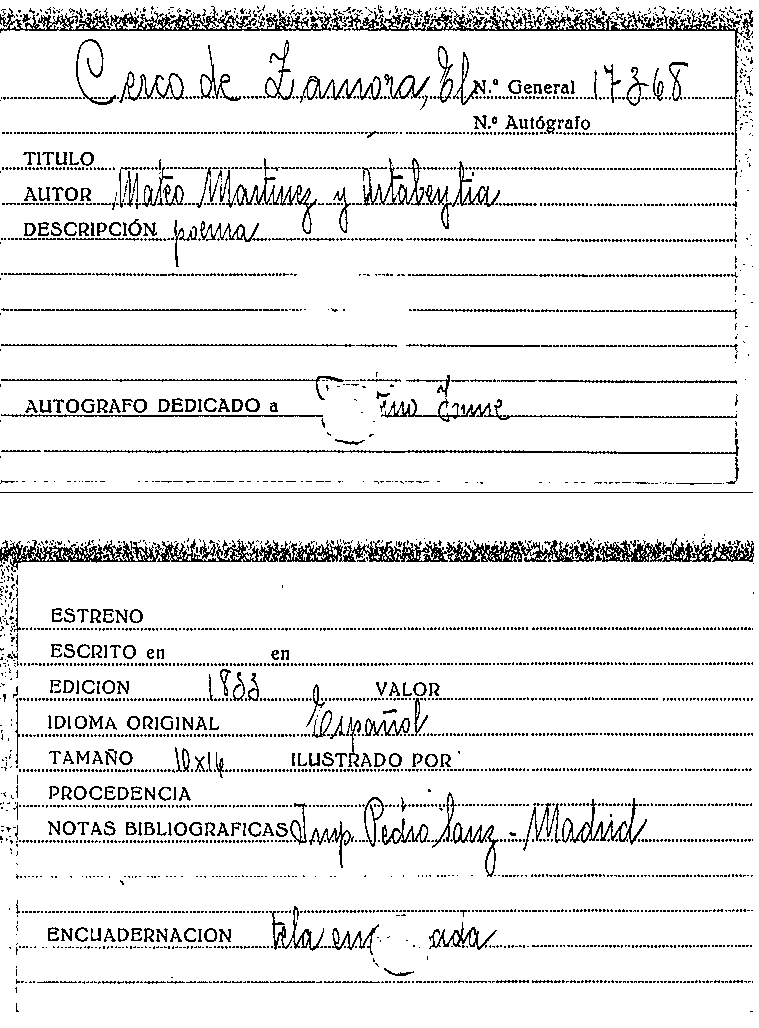 Cerco de Zamora, El N.º General 17368
N.º Autógrafo
TITULO
AUTOR Mateo Martinez y Artabeytia
DESCRIPCIÓN poema
AUTOGRAFO DEDICADO a
ESTRENO
ESCRITO en en
EDICION 1833 VALOR
IDIOMA ORIGINAL Español
TAMAÑO 10x14 ILUSTRADO POR
PROCEDENCIA
NOTAS BIBLIOGRAFICAS Imp. Pedro Sanz - Madrid
ENCUADERNACION tela